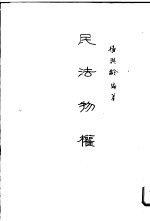 民法物權
楊與齡編著